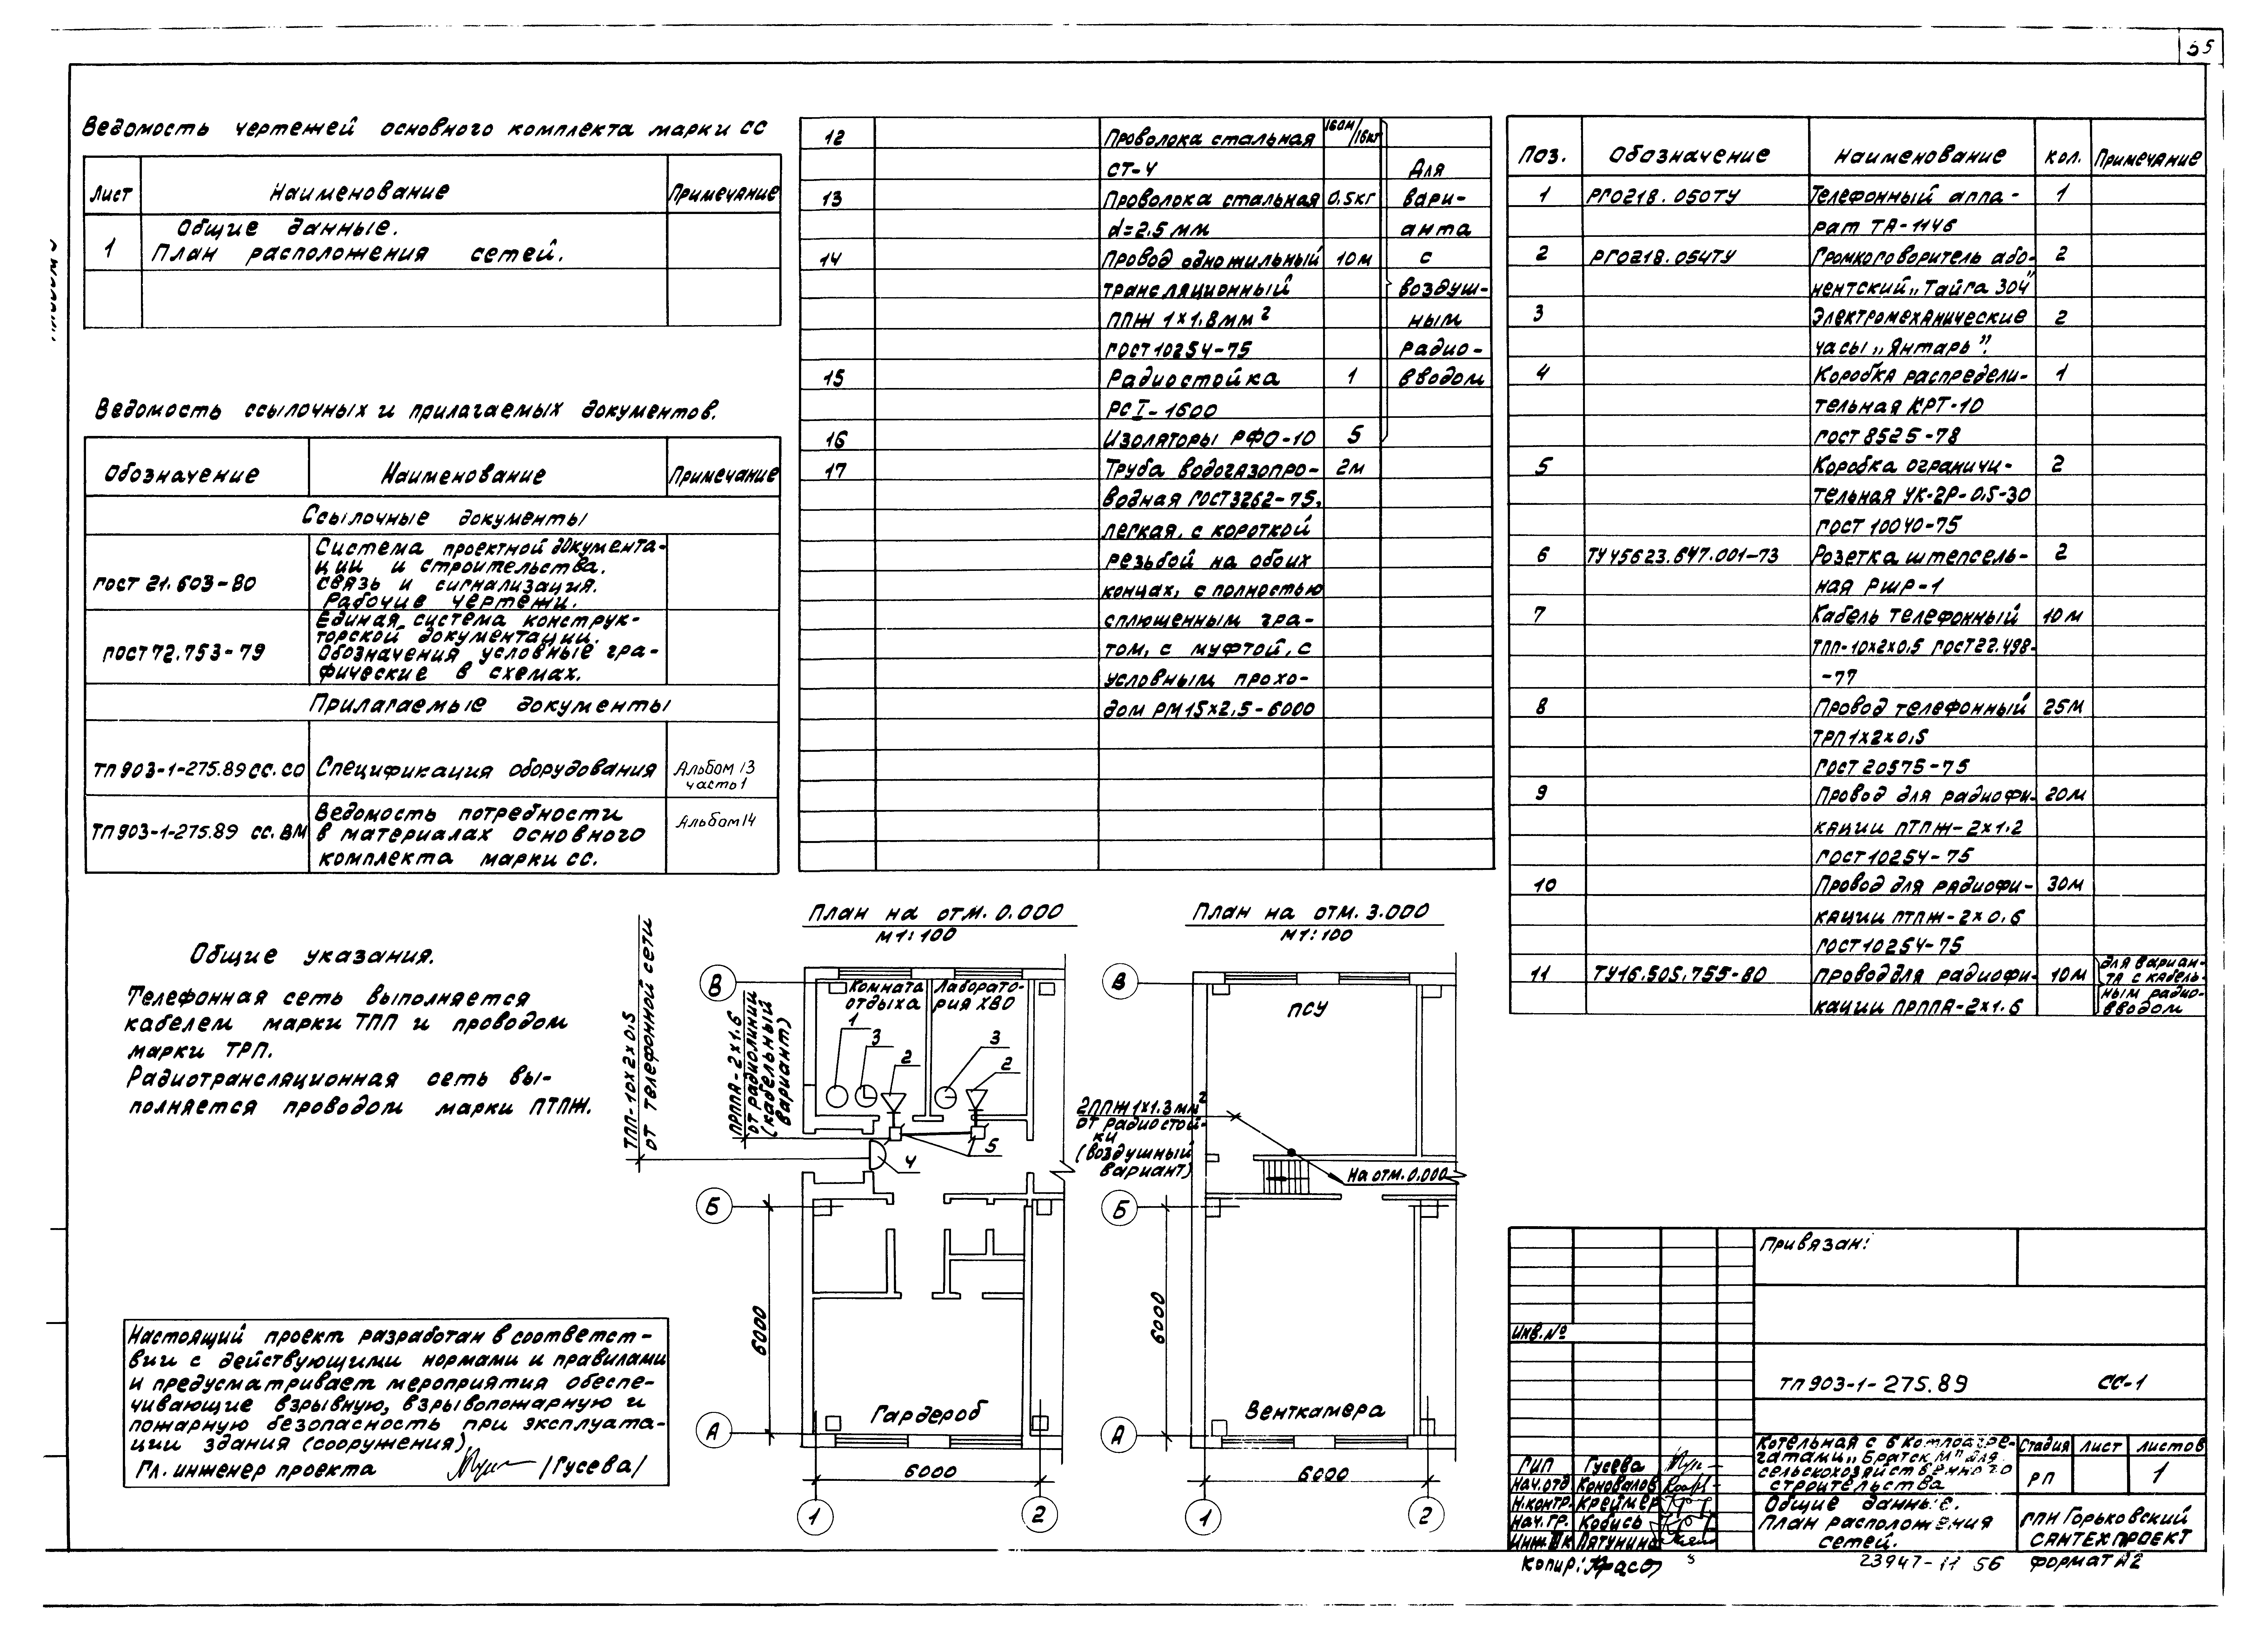 55
Ведомость чертежей основного комплекта марки СС
Лист Наименование Примечание
1 Общие данные.
План расположения сетей.
Ведомость ссылочных и прилагаемых документов.
Обозначение Наименование Примечание
Ссылочные документы
ГОСТ 21.603-80 Система проектной документа-
ции и строительства.
Связь и сигнализация.
Рабочие чертежи.
ГОСТ 72.753-79 Единая система конструк-
торской документации.
Обозначения условные гра-
фические в схемах.
Прилагаемые документы
ТП 903-1-275.89 СС.СО Спецификация оборудования Альбом 13
часть 1
ТП 903-1-275.89 СС.ВМ Ведомость потребности
в материалах основного
комплекта марки СС.
Альбом 14
Общие указания.
Телефонная сеть выполняется
кабелем марки ТПП и проводом
марки ТРП.
Радиотрансляционная сеть вы-
полняется проводом марки ПТПЖ.
Настоящий проект разработан в соответст-
вии с действующими нормами и правилами
и предусматривает мероприятия обеспе-
чивающие взрывную, взрывопожарную и
пожарную безопасность при эксплуата-
ции здания (сооружения)
Гл. инженер проекта /Гусева/
12 Проволока стальная 160м/16кг
СТ-4 Для
13 Проволока стальная 0,5кг вари-
d=2,5 мм анта
14 Провод одножильный 10м с
трансляционный воздуш-
ППЖ 1×1,8мм² ным
ГОСТ 10254-75 радио-
15 Радиостойка 1 вводом
РСI-1600
16 Изоляторы РФО-10 5
17 Труба водогазопро- 2м
водная ГОСТ 3262-75,
легкая, с короткой
резьбой на обоих
концах, с полностью
сплющенным гра-
том, с муфтой, с
условным прохо-
дом РМ15×2,5-6000
Поз. Обозначение Наименование Кол. Примечание
1 РГ0218.050ТУ Телефонный аппа- 1
рат ТА-1146
2 РГ0218.054ТУ Громкоговоритель або- 2
нентский „Тайга 304"
3 Электромеханические 2
часы „Янтарь".
4 Коробка распредели- 1
тельная КРТ-10
ГОСТ 8525-78
5 Коробка ограничи- 2
тельная УК-2Р-0,5-30
ГОСТ 10040-75
6 ТУ45623.647.001-73 Розетка штепсель- 2
ная РШР-1
7 Кабель телефонный 10м
ТПП-10×2×0,5 ГОСТ 22.498-
-77
8 Провод телефонный 25м
ТРП 1×2×0,5
ГОСТ 20575-75
9 Провод для радиофи- 20м
кации ПТПЖ-2×1.2
ГОСТ 10254-75
10 Провод для радиофи- 30м
кации ПТПЖ-2×0,6
ГОСТ 10254-75
11 ТУ16.505.755-80 Провод для радиофи- 10м
кации ПРППА-2×1.6
для вариан-
та с кабель-
ным радио-
вводом
План на отм. 0.000
М1:100
ТПП-10×2×0,5
от телефонной сети
ПРППА-2×1.6
от радиолинии
(кабельный
вариант)
Комната
отдыха
Лаборато-
рия ХВО
1 3 2 3 2
4 5
Гардероб
В
Б
А
6000
6000
1 2
План на отм. 3.000
М1:100
ПСУ
2ППЖ 1×1.3мм²
от радиостой-
ки
(воздушный
вариант)
На отм. 0.000
Венткамера
В
Б
А
6000
6000
1 2
Привязан:
Инв.№
ТП 903-1-275.89 СС-1
Котельная с 6 котлоагре-
гатами „Братск М" для
сельскохозяйственного
строительства
Стадия Лист Листов
РП 1
Общие данные.
План расположения
сетей.
ГПИ Горьковский
САНТЕХПРОЕКТ
ГИП Гусева
Нач.отд Коновалов
Н.контр. Креймер
Нач.гр. Кобись
Инж. IIк Пятунина
Копир:
23947-11 56 Формат А2